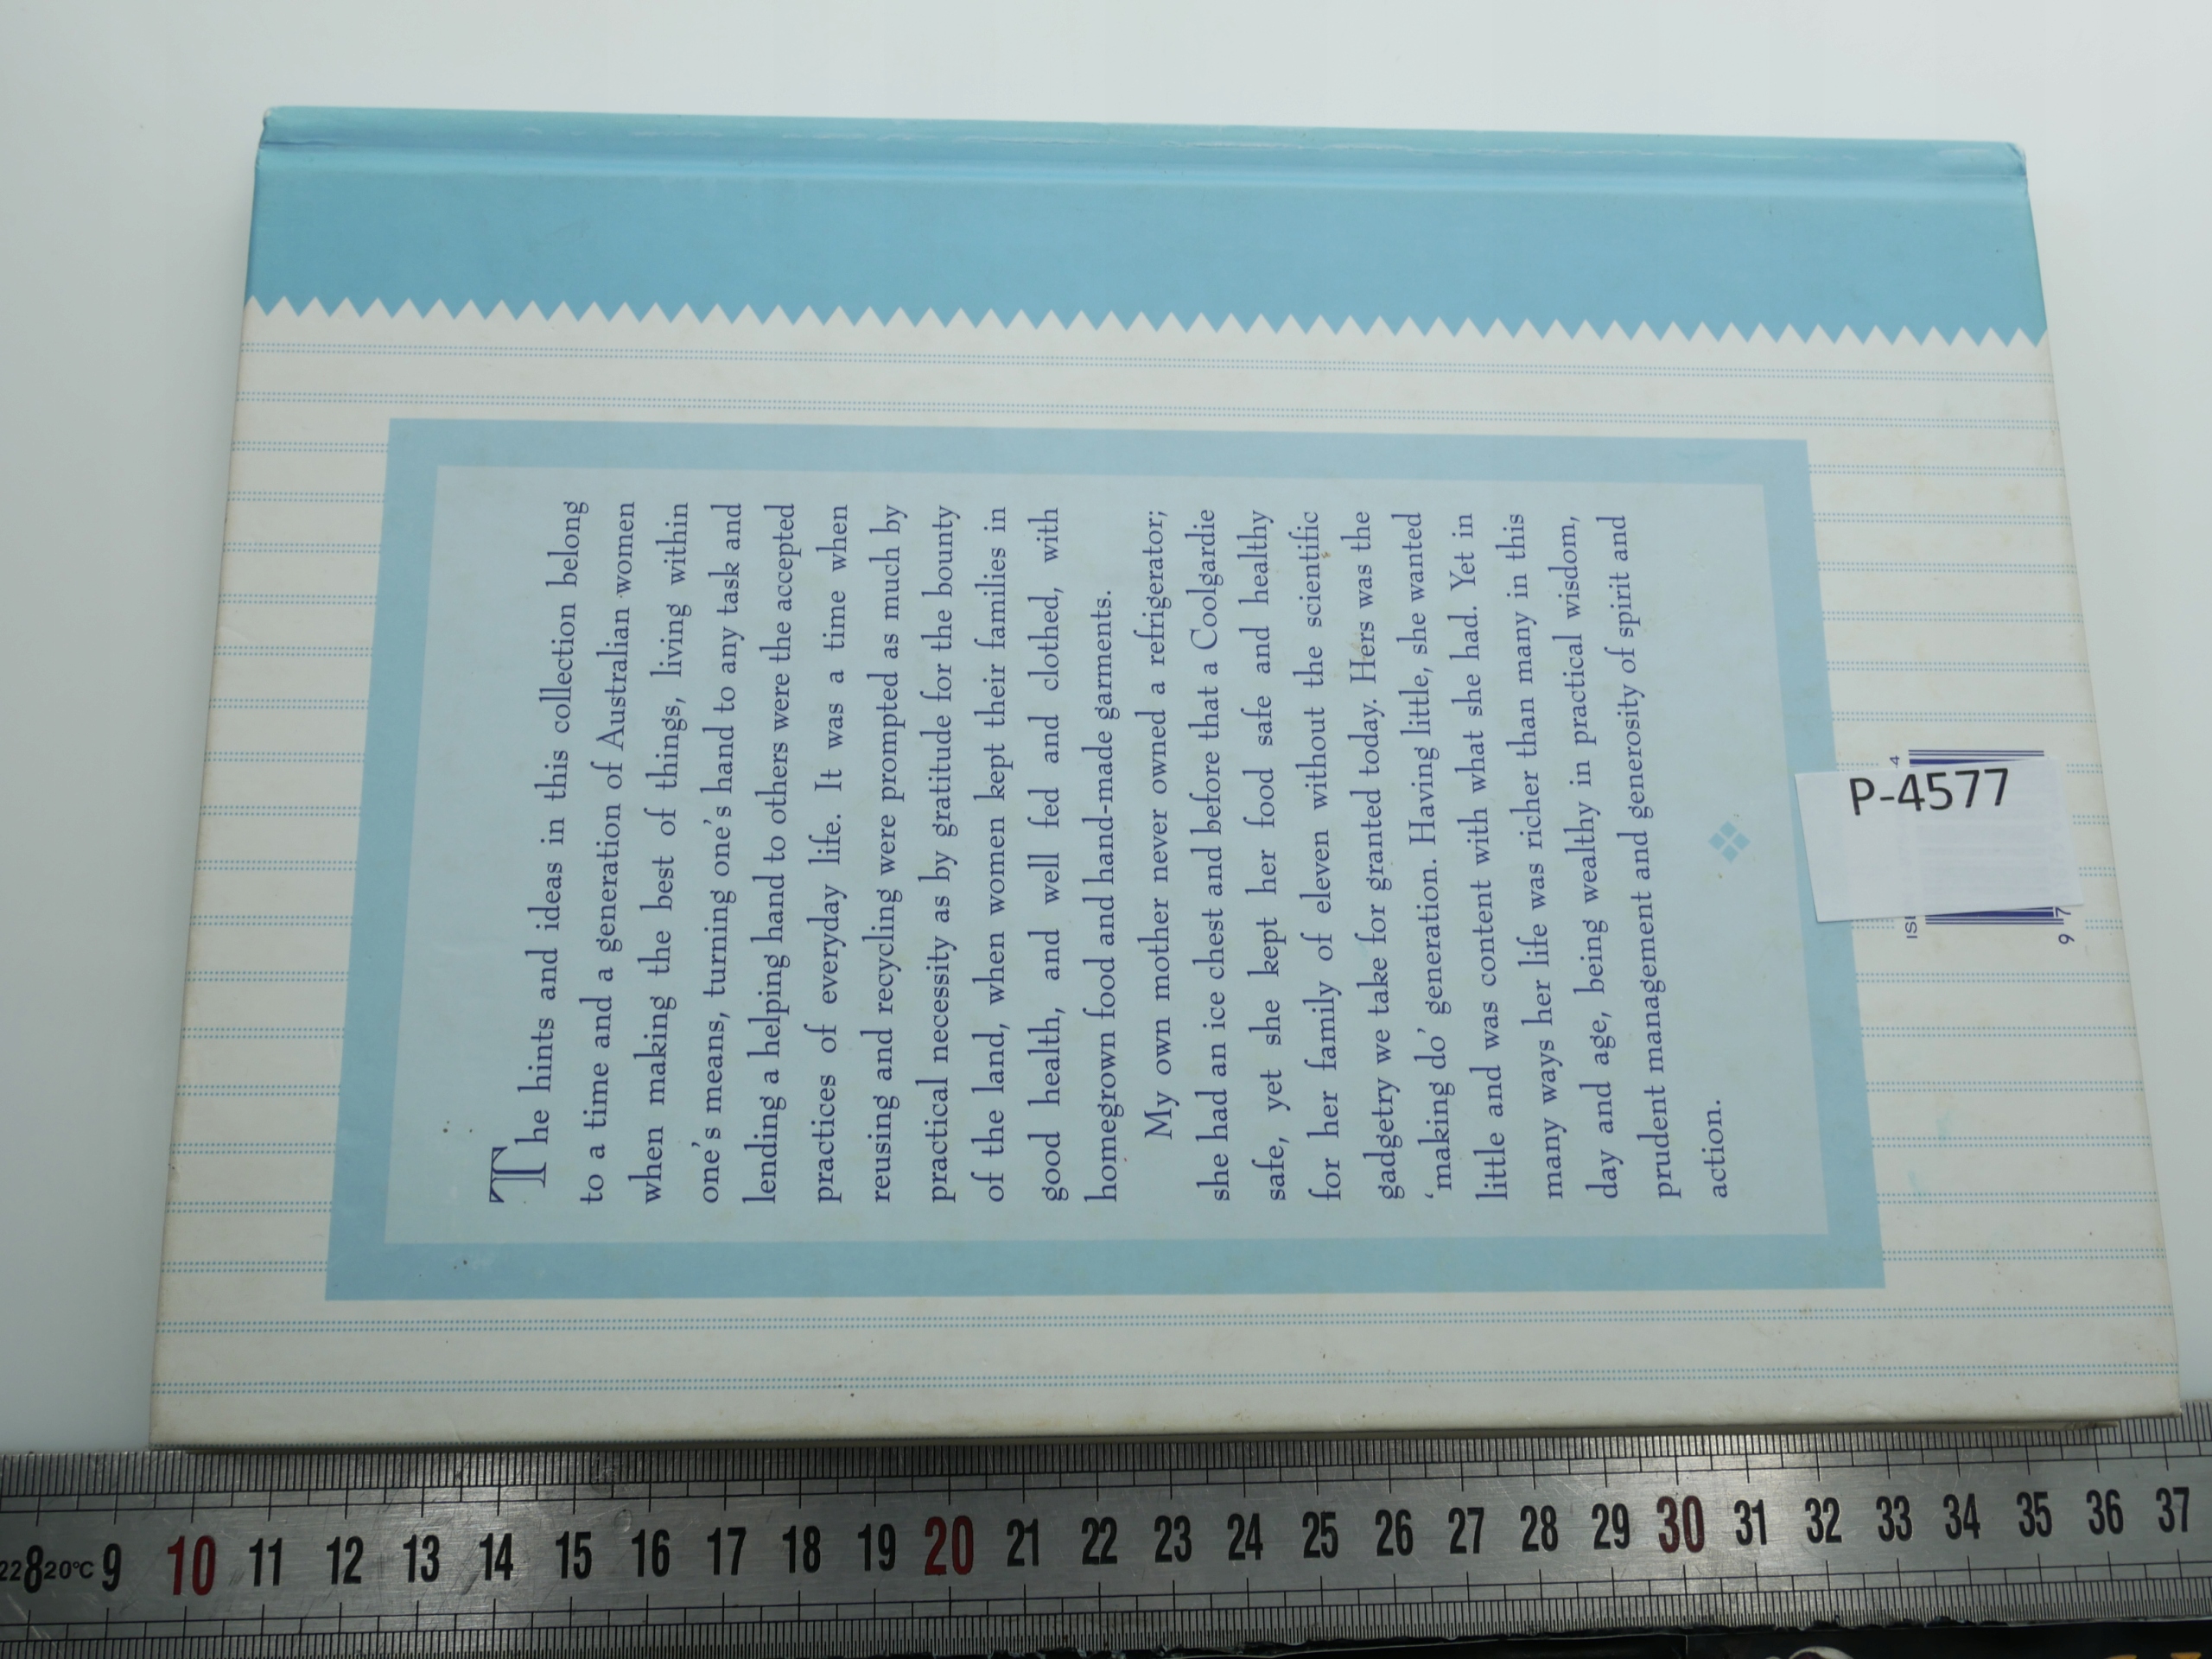 The hints and ideas in this collection belong
to a time and a generation of Australian women
when making the best of things, living within
one's means, turning one's hand to any task and
lending a helping hand to others were the accepted
practices of everyday life. It was a time when
reusing and recycling were prompted as much by
practical necessity as by gratitude for the bounty
of the land, when women kept their families in
good health, and well fed and clothed, with
homegrown food and hand-made garments.
My own mother never owned a refrigerator;
she had an ice chest and before that a Coolgardie
safe, yet she kept her food safe and healthy
for her family of eleven without the scientific
gadgetry we take for granted today. Hers was the
'making do' generation. Having little, she wanted
little and was content with what she had. Yet in
many ways her life was richer than many in this
day and age, being wealthy in practical wisdom,
prudent management and generosity of spirit and
action.
P-4577
4
9 7
8 20°C 9 10 11 12 13 14 15 16 17 18 19 20 21 22 23 24 25 26 27 28 29 30 31 32 33 34 35 36 37